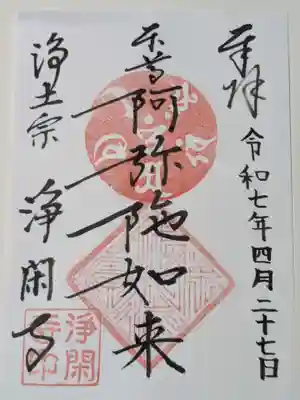 奉拝
令和七年四月二十七日
本尊阿弥陀如来
浄土宗
浄閑寺
浄閑寺印